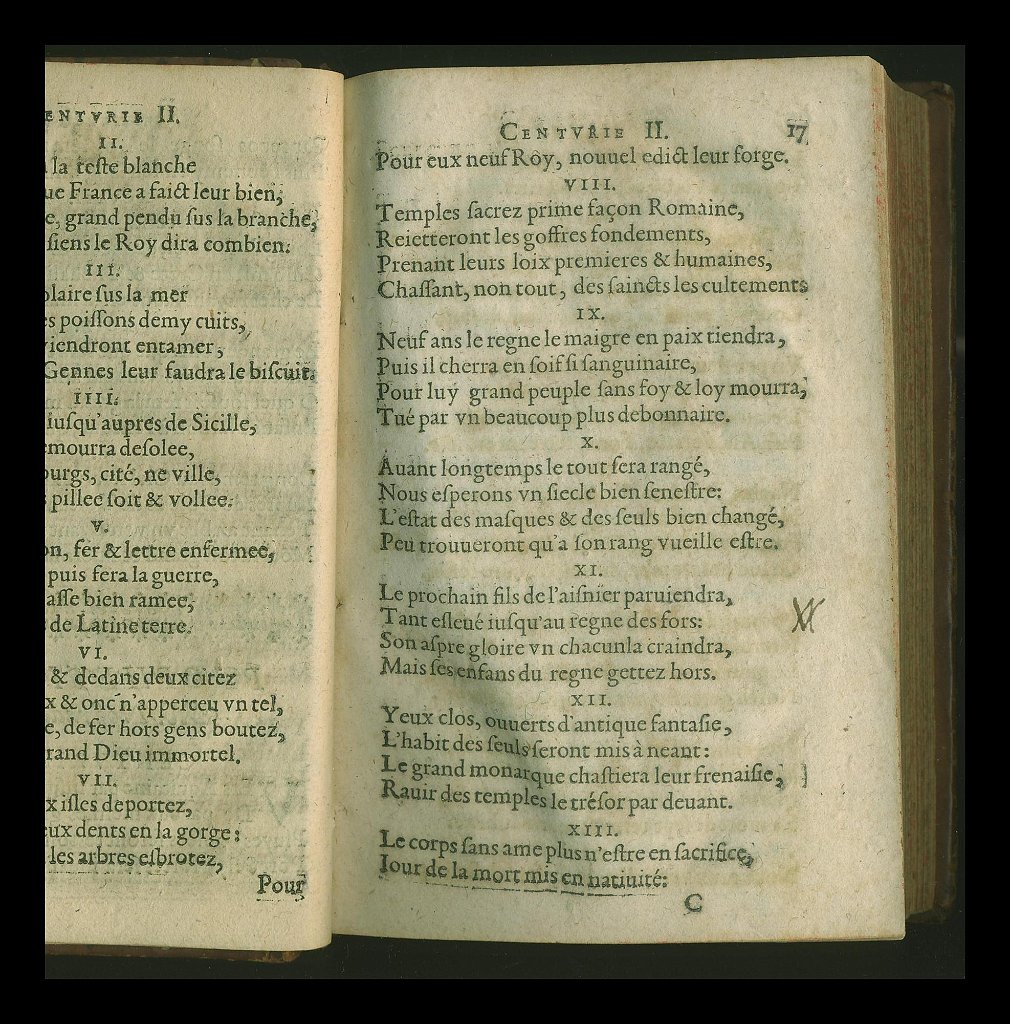 CENTVRIE II.
II.
la teste blanche
France a faict leur bien,
grand pendu sus la branche,
siens le Roy dira combien.
III.
sus la mer
poissons demy cuits,
viendront entamer,
Gennes leur faudra le biscuit.
IIII.
iusqu'aupres de Sicille,
mourra desolee,
cité, ne ville,
pillee soit & vollee.
V.
fer & lettre enfermee,
puis fera la guerre,
bien ramee,
de Latine terre.
VI.
& dedans deux citez
& onc n'apperceu vn tel,
de fer hors gens boutez,
Dieu immortel.
VII.
isles deportez,
dents en la gorge:
les arbres esbrotez,
Pour
CENTVRIE II. 17
Pour eux neuf Roy, nouuel edict leur forge.
VIII.
Temples sacrez prime façon Romaine,
Reietteront les goffres fondements,
Prenant leurs loix premieres & humaines,
Chassant, non tout, des saincts les cultements
IX.
Neuf ans le regne le maigre en paix tiendra,
Puis il cherra en soif si sanguinaire,
Pour luy grand peuple sans foy & loy mourra,
Tué par vn beaucoup plus debonnaire.
X.
Auant longtemps le tout sera rangé,
Nous esperons vn siecle bien senestre:
L'estat des masques & des seuls bien changé,
Peu trouueront qu'a son rang vueille estre.
XI.
Le prochain fils de l'aisnier paruiendra,
Tant esleué iusqu'au regne des fors:
Son aspre gloire vn chacun la craindra,
Mais ses enfans du regne gettez hors.
XII.
Yeux clos, ouuerts d'antique fantasie,
L'habit des seuls seront mis à neant:
Le grand monarque chastiera leur frenaisie,
Rauir des temples le trésor par deuant.
XIII.
Le corps sans ame plus n'estre en sacrifice,
Iour de la mort mis en natiuité:
C